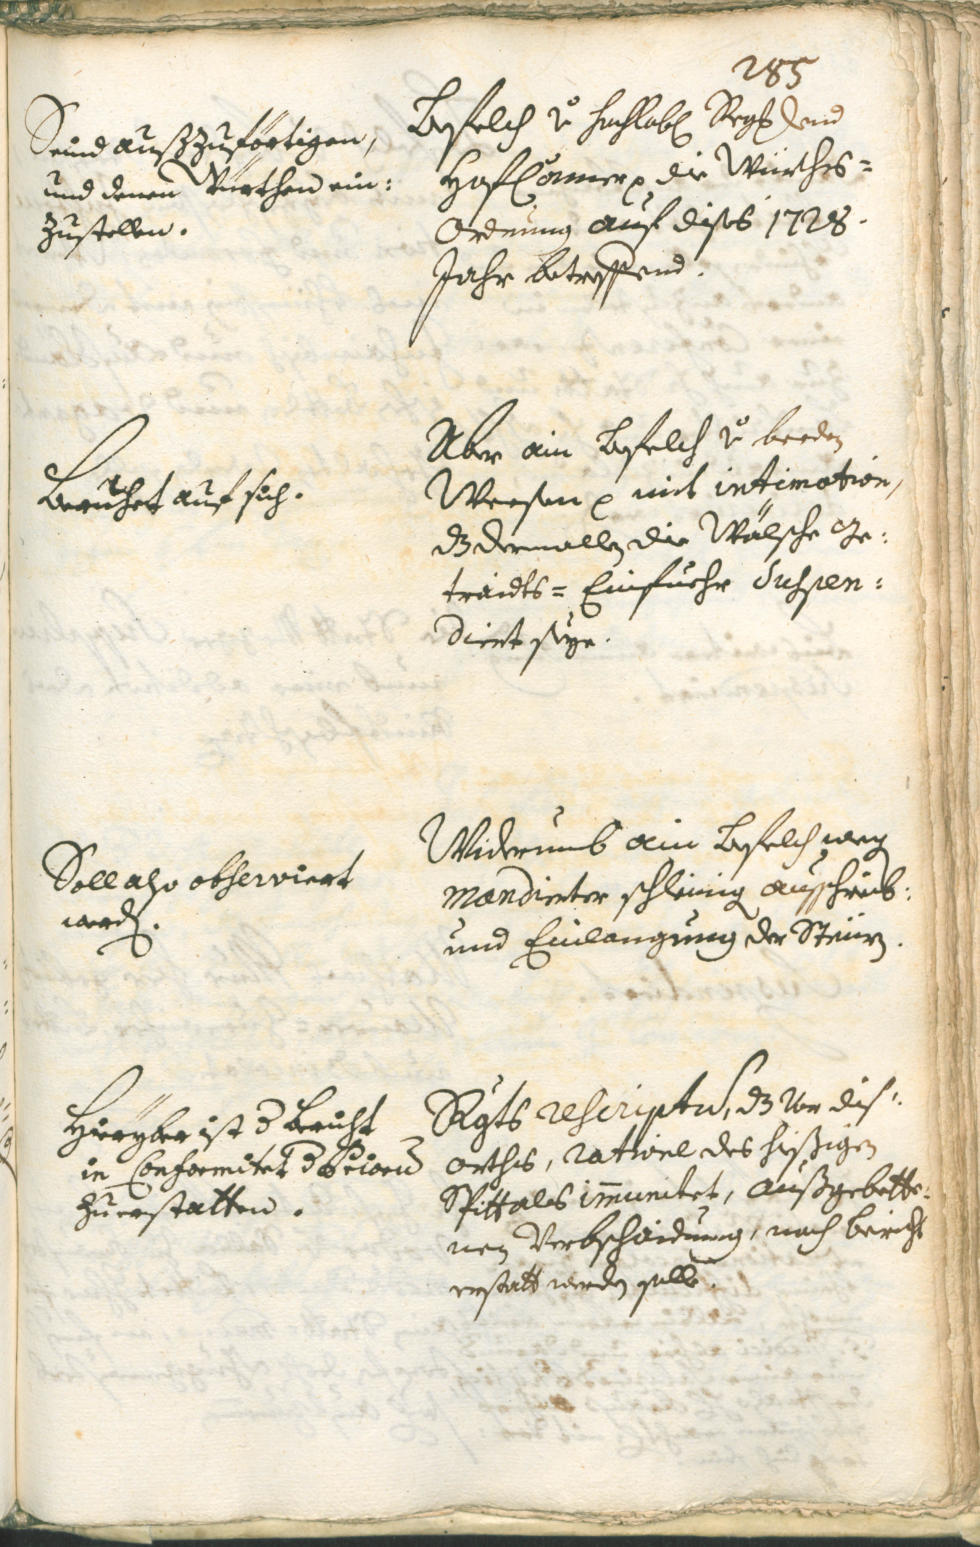 285
Seind außzuförtigen,
und denen Würthen ein:
zustellen.
Befelch v hochlobl Regs und
Hof Camer p die Würths=
Ordnung auf dises 1728.
Jahr betreffend.
Beruhet auf sich.
Aber ain Befelch v beeden
Weesen p mit intimation,
dz dermallen die Wälsche Ge:
traidts= Einfuehr Suspen:
diert seye.
Soll also observiert
werden.
Widerumb ain Befelch weg
mandierter schleinig ausschreib:
und Einlangung der Steürn.
Hierüber ist d Bericht
in Conformitet d
zuerstatten.
Rgts rescriptum, dz Von dis:
orths, ratione des hießigen
Spittals immunitet, außgebette:
nen Verbschaidung, noch bericht
erstatt werden solle.